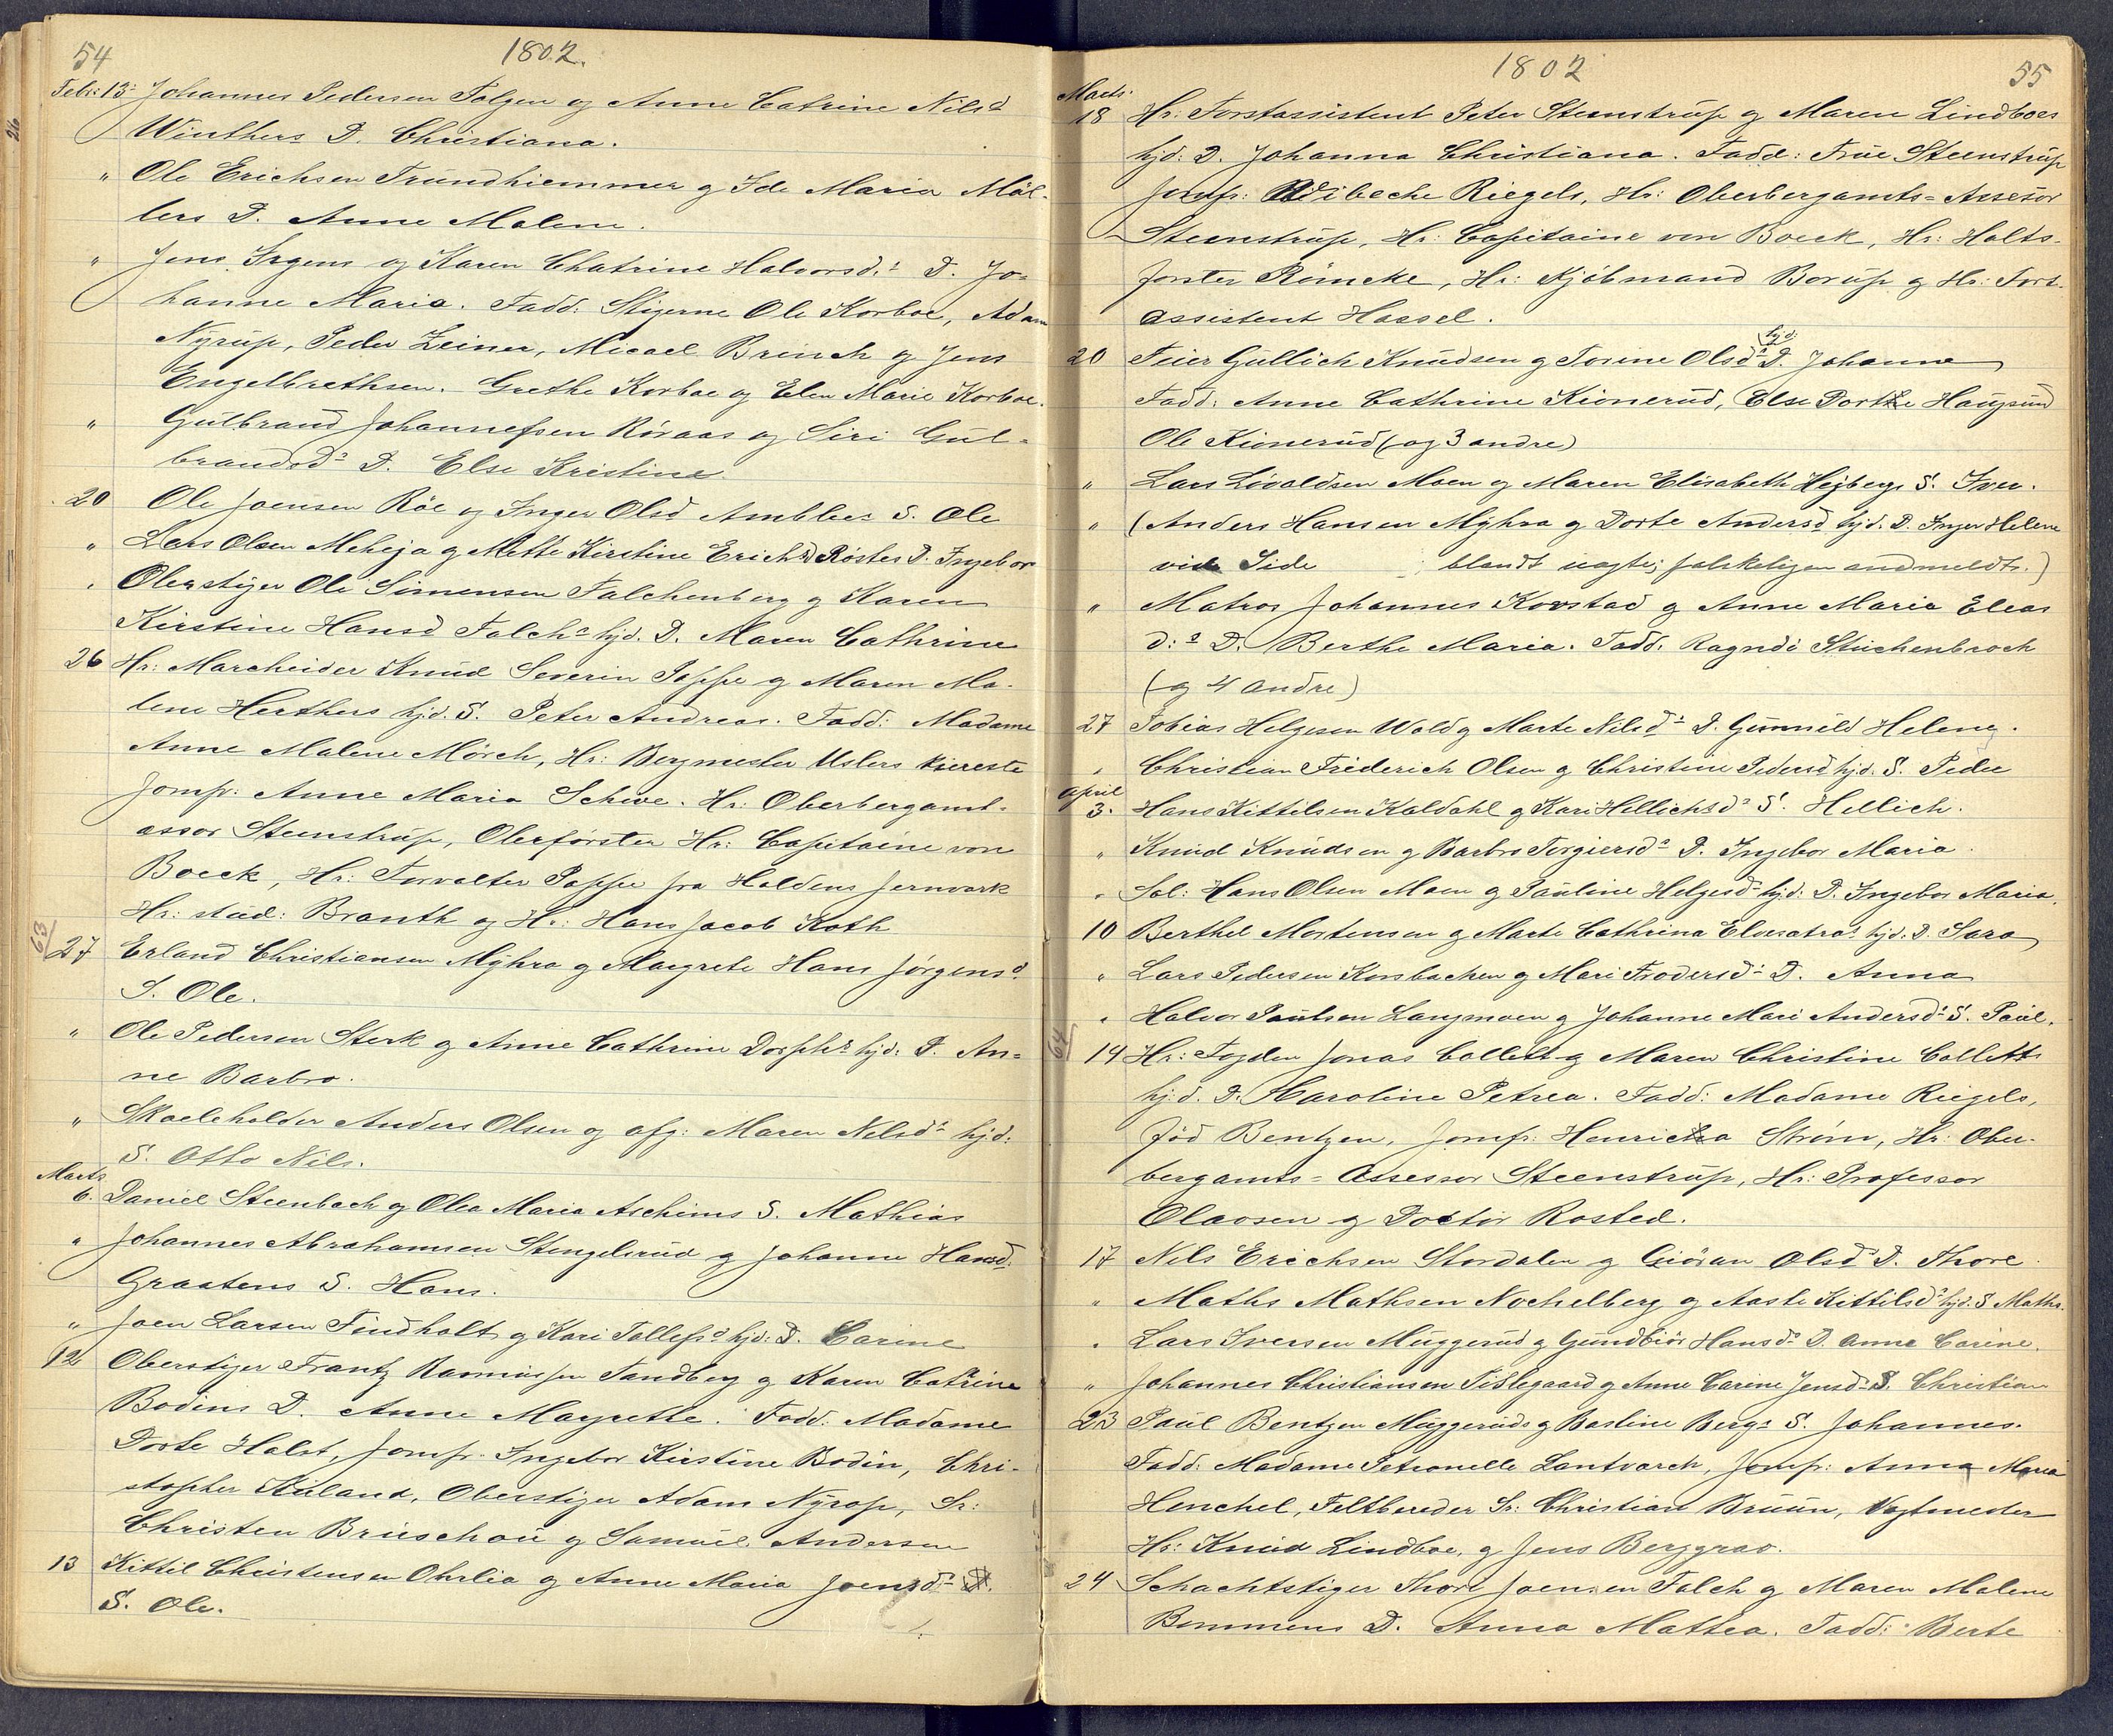 54
1802.
Febr: 13: Johannes Pedersen Folgen og Anne Catrine Nilsd
Winthers D. Christiana.
" Ole Erichsen Trundhiemmer og Ide Maria Möl-
lers D. Anne Malene.
" Jens Irgens og Karen Chatrine Halvorsd:s D. Jo-
hanne Maria. Fadd: Stigerne Ole Korboe, Adam
Nÿrup, Peder Zeiner, Micael Brinch og Jens
Engelbrethsen. Grethe Korboe og Elen Marie Korboe.
" Gulbrand Johannessen Röraas og Siri Gul-
brandsd:s D. Else Kristine.
20 Ole Joensen Röe og Inger Olsd Ambles S. Ole
" Lars Olsen Meheja og Mette Kirstine Erichsd Røstes D. Ingebor
" Oberstiger Ole Simensen Falchenberg og Karen
Kirstine Hansd Falchs hjd. D. Maren Cathrine
26 Hr: Marcheider Knud Severin Poppe og Maren Ma-
lene Herthers hjd. S. Peter Andreas. Fadd: Madame
Anne Malene Mörch, Hr: Bergmester Uslers kiereste
Jomfr: Anne Maria Schive. Hr: Oberbergamt-
assor Steenstrup, Oberförster Hr: Capitaine von
Boeck, Hr: Forvalter Poppe fra Holdens Jernvark
Hr: stud: Branth og Hr: Hans Jacob Koth
63
27 Erland Christiansen Mÿhra og Margrete Hans Jörgensd
S. Ole.
" Ole Pedersen Sterk og Anne Cathrine Dorphs hjd: D. An-
ne Barbro.
" Skoleholder Anders Olsen og afg: Maren Nilsd:s hjd:
S. Otto Nils.
Marts
6. Daniel Steenbach og Olea Maria Aschims S. Mathias
" Johannes Abrahamsen Stengelsrud og Johanne Hansd:
Graatens S. Hans.
" Joen Larsen Findholt og Kari Tollefsd hjd: D. Carine
12 Oberstiger Frantz Rasmussen Sandberg og Karen Catrine
Bodins D. Anne Margrette. Fadd: Madame
Dorte Holst, Jomfr: Ingebor Kirstine Bodin, Chri-
stopher Kiuland, Oberstiger Adam Nÿrop, Sr:
Christen Bruschou og Samuel Andersen
13 Kittil Christensen Ohrlia og Anne Maria Joensd:s
S. Ole.
1802
55
Marts
18 Hr: Forstassistent Peter Steenstrup og Maren Lindboes
hjd: D. Johanna Christiana. Fadd: Frue Steenstrup
Jomfr: Wibeche Riegels, Hr: Oberbergamts-Assesor
Steenstrup, Hr: Capitaine von Boeck, Hr: Holts-
forster Römcke, Hr: Kjöbmand Borup og Hr: Fort-
assistent Hassel.
hjd:
20 Feier Gullich Knudsen og Torine Olsd:s D. Johanne
Fadd: Anne Cathrine Kionerud, Else Dorthe Haugsund
Ole Kionerud (og 3 andre)
" Lars Livoldsen Moen og Maren Elisabeth Hejbergs S. Iver.
" (Anders Hansen Mÿhra og Dorte Andersd hjd. D. Inger Helene
vide Side blandt uagte, falskeligen andmeldt.)
" Matros Johannes Korstad og Anne Maria Elias
d:s D. Berthe Maria. Fadd. Ragndi Stichenbroch
(og 4 andre)
27 Tobias Helgesen Wold og Marte Nilsd:s D. Gunnild Helene.
" Christian Friderich Olsen og Christine Pedersd hjd. S. Peder
April
3. Hans Kittilsen Koldahl og Kari Hellichsd:s S. Hellich.
" Knud Knudsen og Barbro Torgiersd:s D. Ingebor Maria.
" Sol: Hans Olsen Moen og Pauline Helgesd:s hjd: D. Ingebor Maria.
10 Berthel Mortensen og Marte Cathrina Elvesatras hjd: D. Sara
" Lars Pedersen Korsbachen og Mari Frodersd:s D. Anna
" Halvor Paulsen Langmoen og Johanne Mari Andersd:s S. Paul.
64
14 Hr: Fogden Jonas Collett og Maren Christine Colletts
hj: d. D. Karoline Petrea. Fadd: Madame Riegels,
föd Bentzen, Jomfr: Henricka Strøm, Hr: Ober-
bergamts-Assessor Steenstrup, Hr: Professor
Olavsen og Doctor Rosted.
17 Nils Erichsen Stordalen og Giöran Olsd:s D. Thore.
" Maths Mathsen Nochelberg og Aaste Kittilsd:s hjd. S Maths.
" Lars Iversen Muggerud og Gundbiör Hansd:s D. Anne Carine.
" Johannes Christiansen Tislegaard og Anne Carine Jensd:s S. Christian
23 Paul Bentzen Muggeruds og Bastine Bergs S. Johannes.
Fadd: Madame Petronelle Lantvarch, Jomfr: Anna Maria
Henchel, Feltbereder Sr: Christian Bruun, Vagtmester
Hr: Knud Lindboe, og Jens Berggrav.
24 Schachtstiger Thore Joensen Falch og Maren Malene
Bemmens D. Anna Mathea. Fadd: Berte